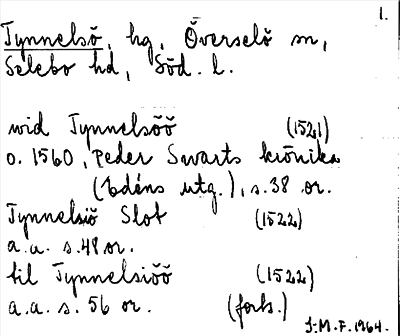 1.
Tynnelsö, hg, Överselö sn,
Selebo hd, Söd. l.
wid Tynnelsöö (1521)
o. 1560, Peder Swarts krönika
(Edéns utg.), s. 38 or.
Tynnelsiö Slot (1522)
a.a. s. 48 or.
til Tynnelsiöö (1522)
a.a. s. 56 or. (forts.)
J.M.F. 1964.